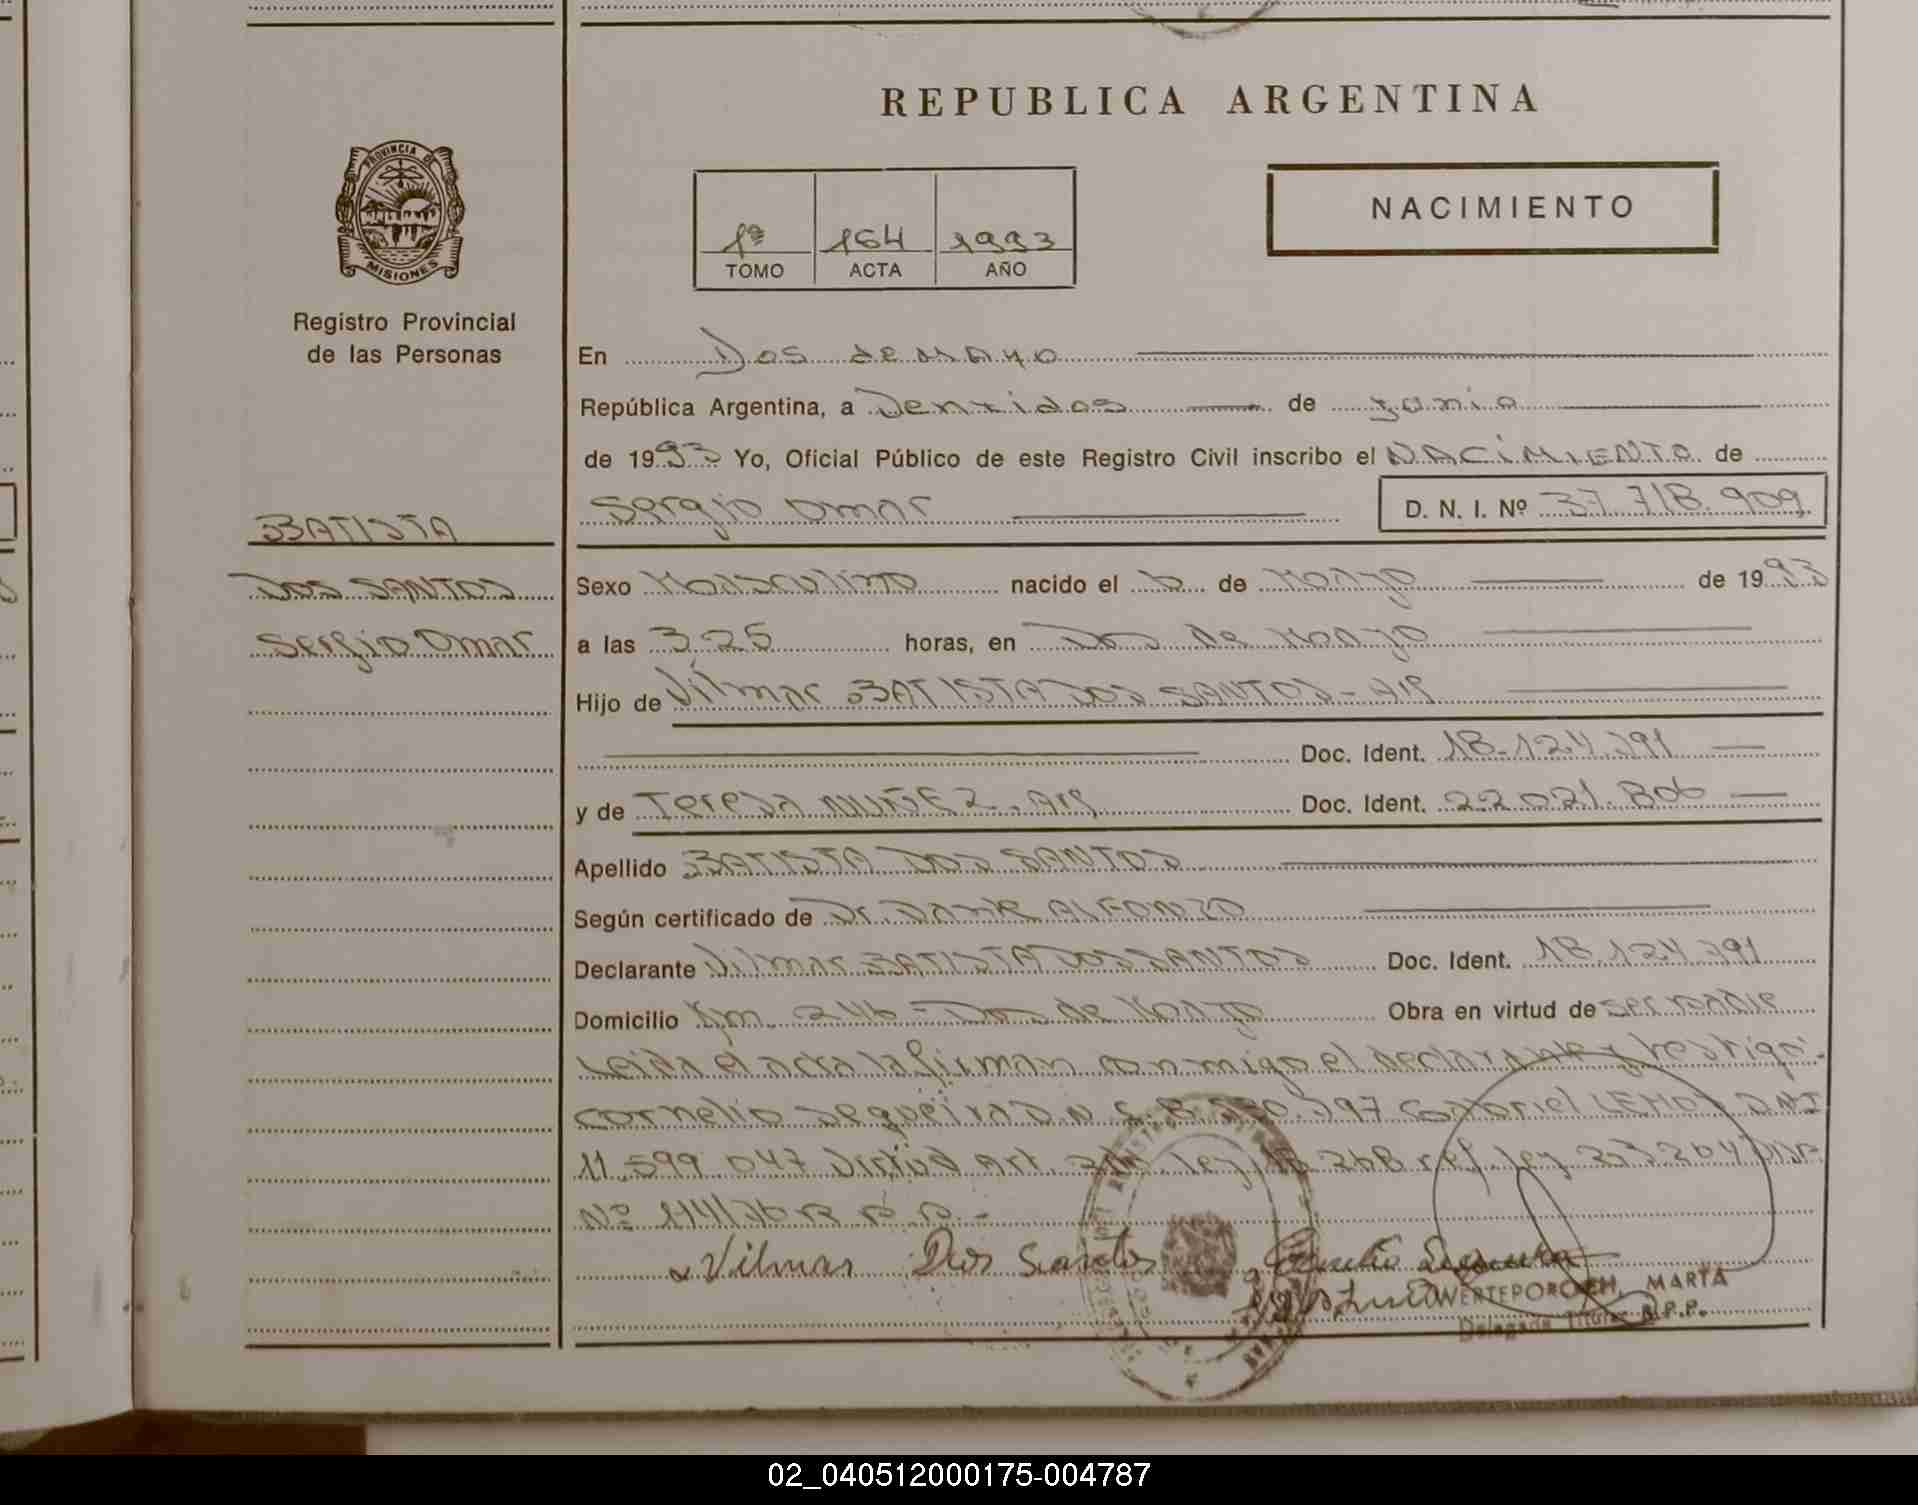 REPUBLICA ARGENTINA
PROVINCIA DE
MISIONES
Registro Provincial
de las Personas
1º 164 1993
TOMO ACTA AÑO
NACIMIENTO
En Dos de mayo
República Argentina, a Ventidos de junio
de 1993 Yo, Oficial Público de este Registro Civil inscribo el NACIMIENTO de
Sergio Omar D. N. I. Nº 37.718.909
BATISTA
DOS SANTOS
Sergio Omar
Sexo Masculino nacido el 6 de Mayo de 1993
a las 3.25 horas, en Dos de Mayo
Hijo de Vilmar BATISTA DOS SANTOS - Arg
Doc. Ident. 18.124.791
y de Teresa NUÑEZ. Arg Doc. Ident. 22.021.806
Apellido BATISTA DOS SANTOS
Según certificado de Dr. Dante ALFONZO
Declarante Vilmar BATISTA DOS SANTOS Doc. Ident. 18.124.791
Domicilio Km. 246 - Dos de Mayo Obra en virtud de ser padre
Leida el acta la firman conmigo el declarante y testigo
Cornelio Sequeira D.N.I. 8. 397 Gabriel LEMOS DNI
11.599.047 Virtud Art. ley 18.248 ref. ley 23.264
Nº R.P.P.-
Vilmar Dos Santos Cornelio Sequeira
WERTEPOROCH, MARTA
Delegada Titular R.P.P.
02_040512000175-004787